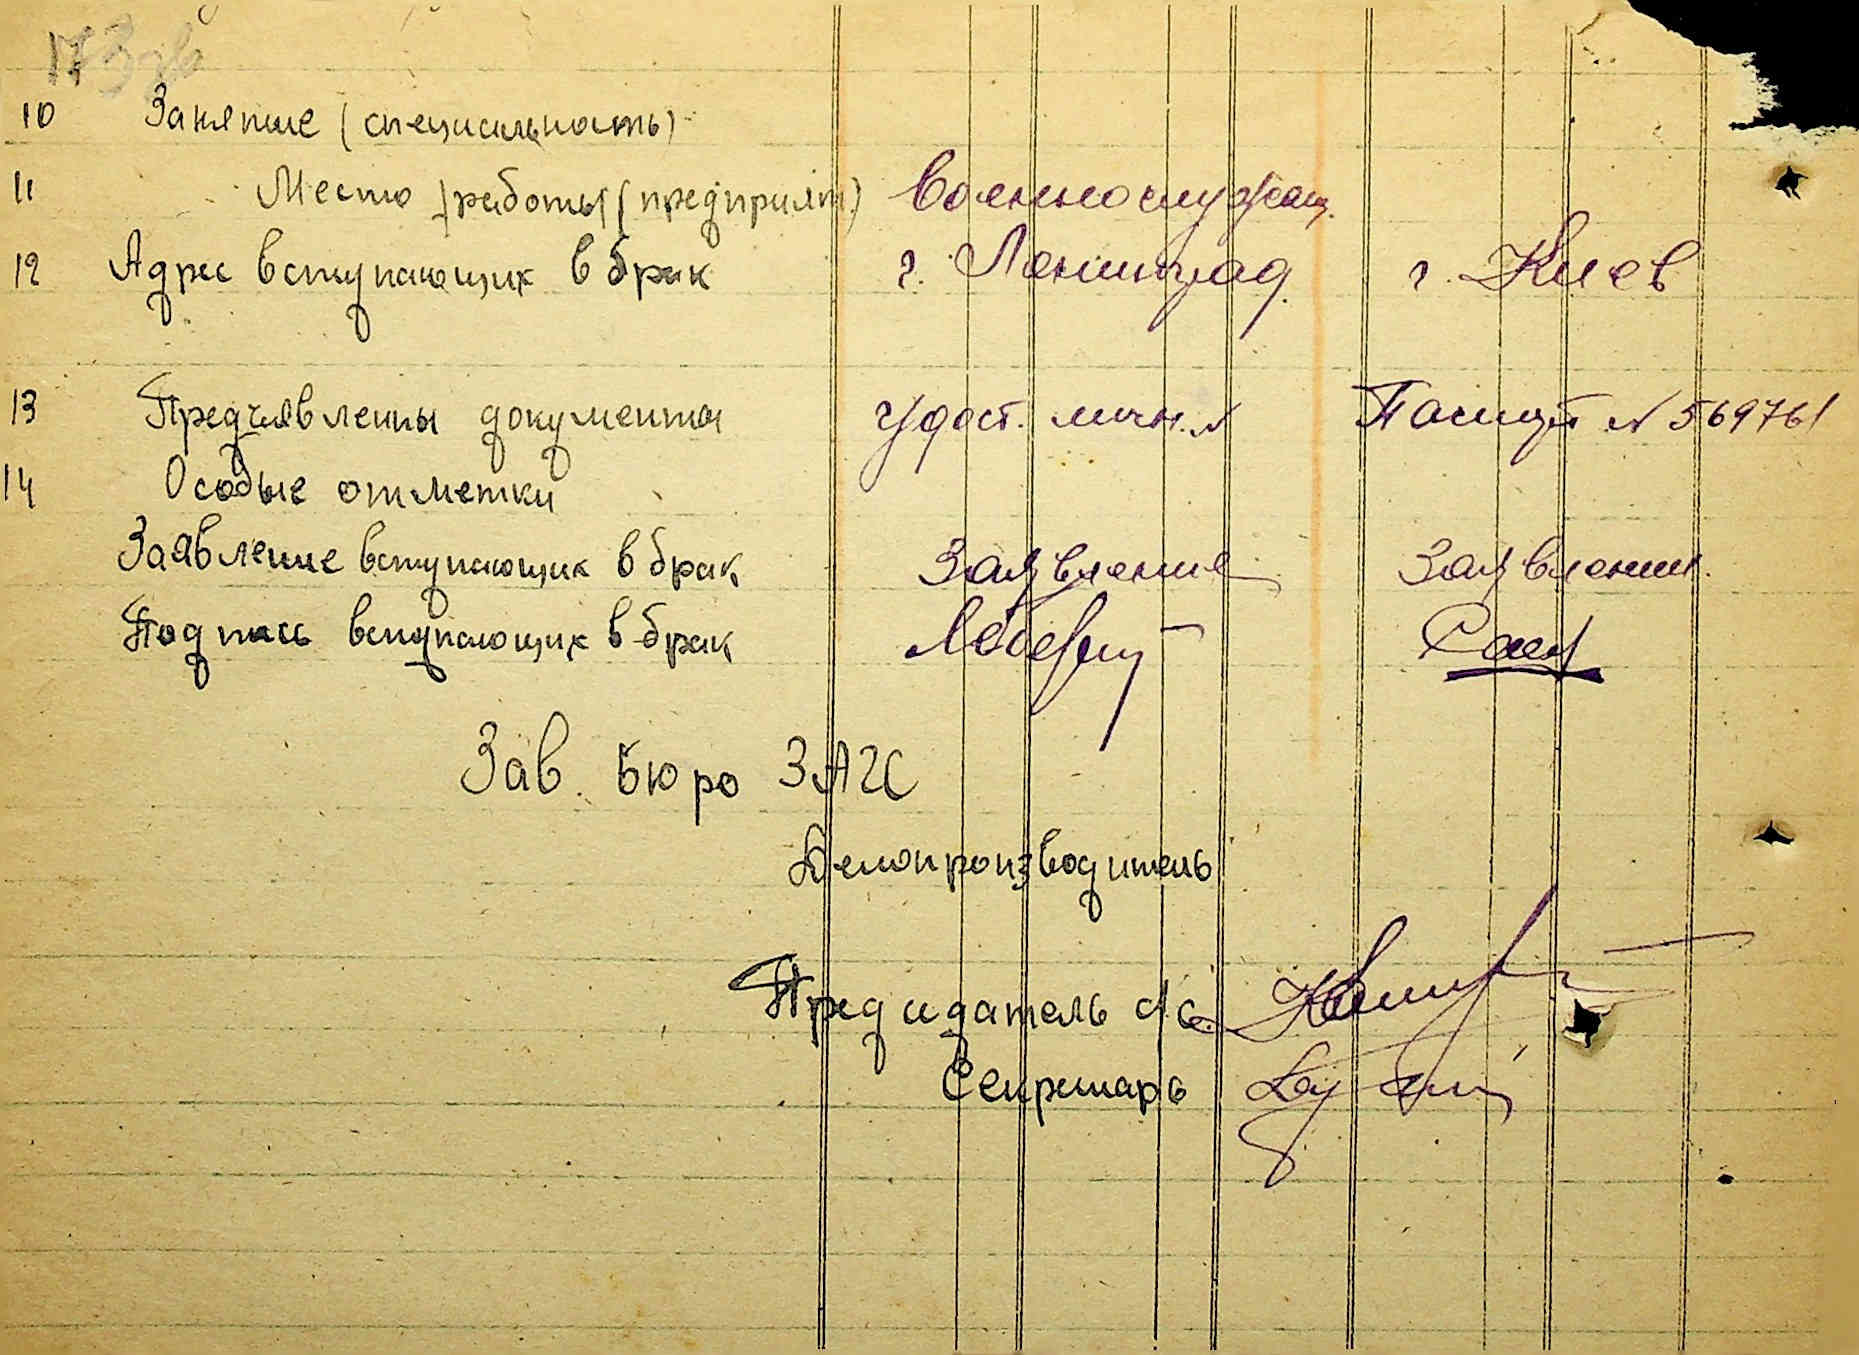 173 зв
10 Занятие (специальность)
11 Место работы (предприят.) Военнослужащ.
12 Адрес вступающих в брак г. Ленинград. г. Киев
13 Предъявлены документы Удост. личн. № Паспорт № 569761
14 Особые отметки
Заявление вступающих в брак Заявление Заявление
Подпись вступающих в брак
Зав. Бюро ЗАГС
Делопроизводитель
Председатель с/с.
Секретарь